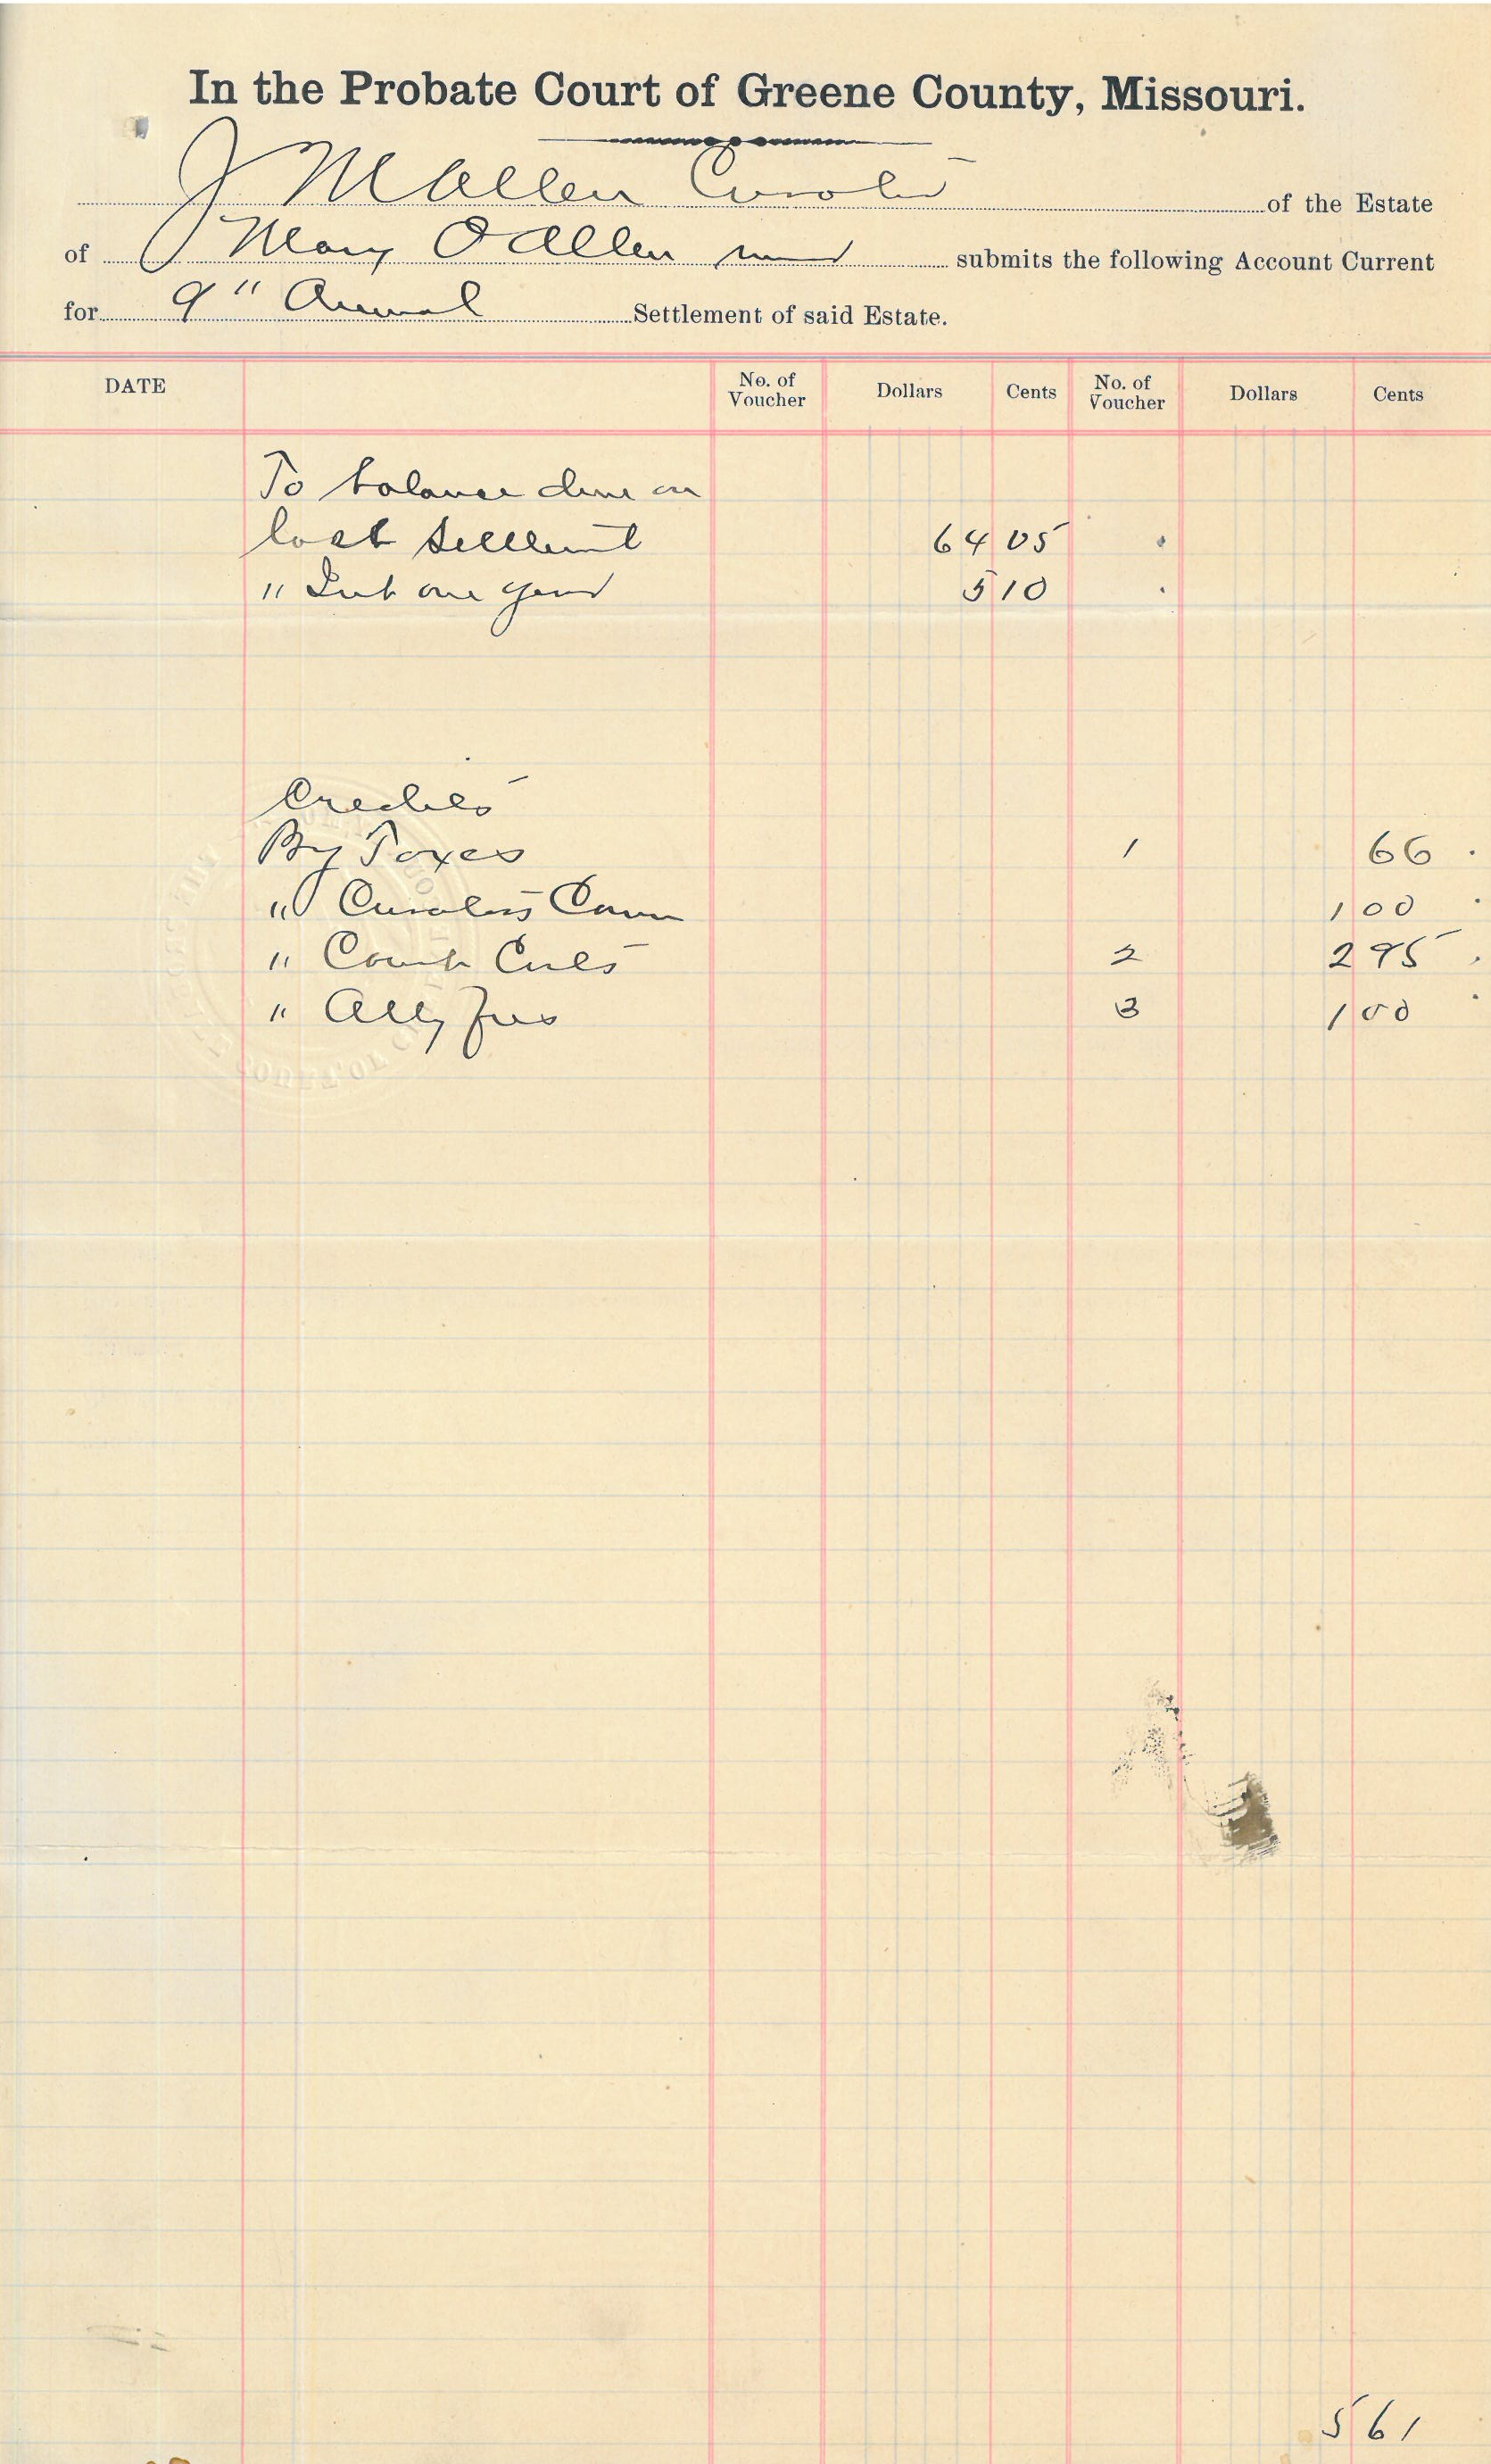 In the Probate Court of Greene County, Missouri.
J M Allen Curator of the Estate
of Mary O Allen minor submits the following Account Current
for 9" Annual Settlement of said Estate.
DATE No. of Voucher Dollars Cents No. of Voucher Dollars Cents
To balance due on
last Settlement 64 05
" Int one year 5 10
Credits
By Taxes 1 66
" Curators Com 1 00
" Court Costs 2 2 95
" Atty fees 3 1 00
5 61